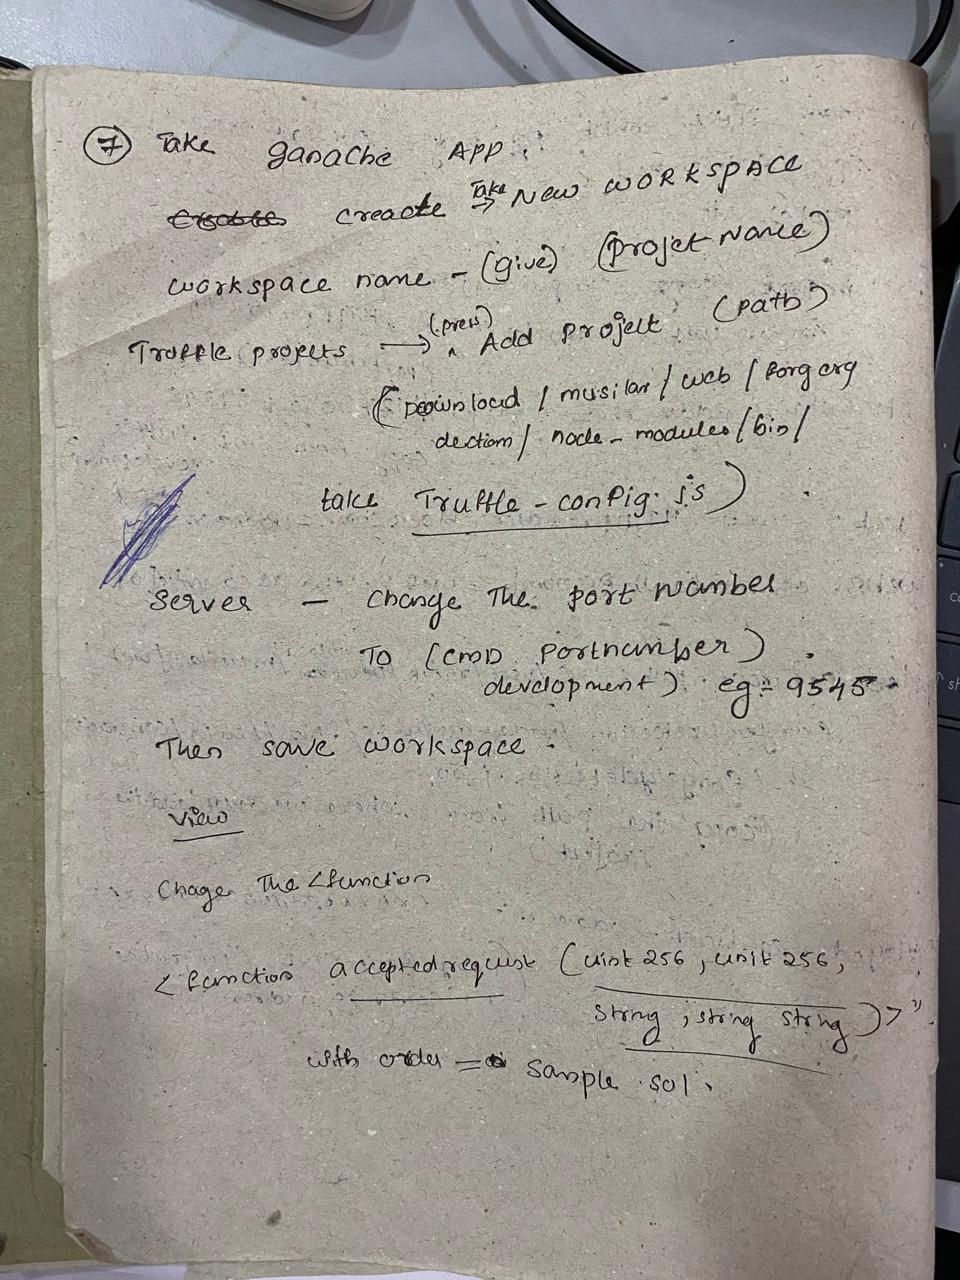 7 Take ganache APP.
creacte Take → New WORKSPACE
workspace name - (give) (projet Name)
Truffle projets → (press) ^ Add projelt (path)
(Download / musilar / web / Forg erg
dection / node - modules / bin /
take Truffle - config. js)
Server - change The port number
To (CMD Portnumber)
development) eg:- 9545 -
Then save workspace.
View
Chage The <function
< function acceptedrequst (uist 256, unit 256,
string ; string string )>"
with order = sample . sol.